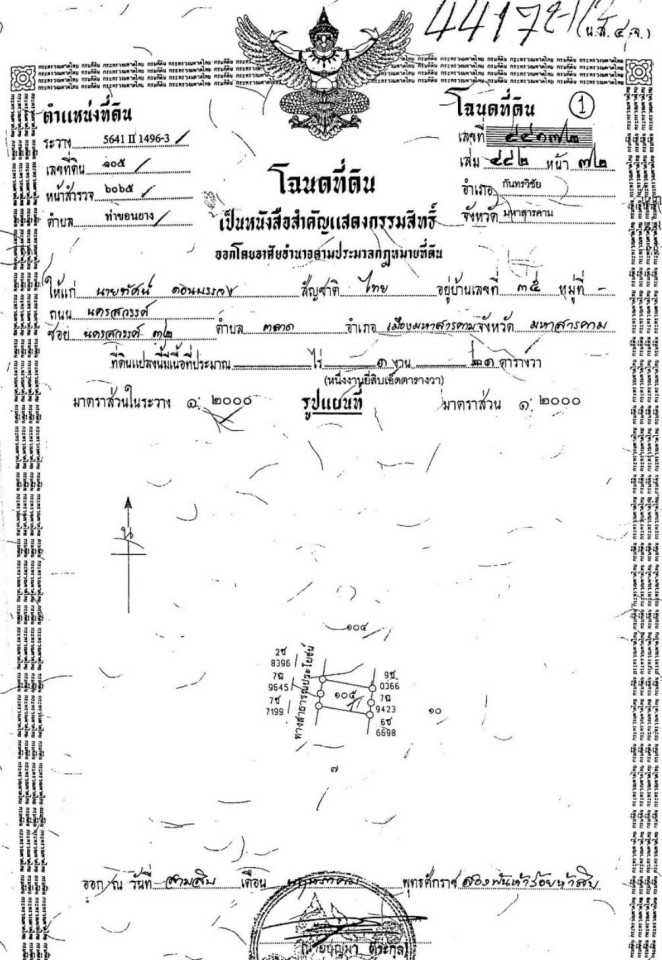 (น.ส. ๔ จ.)
ตำแหน่งที่ดิน
ระวาง 5641 II 1496-3
เลขที่ดิน ๑๐๕
หน้าสำรวจ ๖๐๖๕
ตำบล ท่าขอนยาง
โฉนดที่ดิน ①
เลขที่ ๔๔๑๗๒
เล่ม ๔๔๒ หน้า ๗๒
อำเภอ กันทรวิชัย
จังหวัด มหาสารคาม
โฉนดที่ดิน
เป็นหนังสือสำคัญแสดงกรรมสิทธิ์
ออกโดยอาศัยอำนาจตามประมวลกฎหมายที่ดิน
ให้แก่ นายทัศน์ สัญชาติ ไทย อยู่บ้านเลขที่ ๓๕ หมู่ที่ -
ถนน นครสวรรค์
ซอย นครสวรรค์ ๓๒ ตำบล ตลาด อำเภอ เมืองมหาสารคาม จังหวัด มหาสารคาม
ที่ดินแปลงนี้มีเนื้อที่ประมาณ ไร่ ๑ งาน ๒๑ ตารางวา
(หนึ่งงานยี่สิบเอ็ดตารางวา)
มาตราส่วนในระวาง ๑: ๒๐๐๐ รูปแผนที่ มาตราส่วน ๑: ๒๐๐๐
น
๑๐๔
2ช
8396
7ฌ
9645
7ช
7199
ทางสาธารณประโยชน์
๑๐๕
9ช
0366
7ฌ
9423
6ช
6698
๑๐
๗
ออก ณ วันที่ สามสิบ เดือน พุทธศักราช สองพันห้าร้อยห้าสิบ